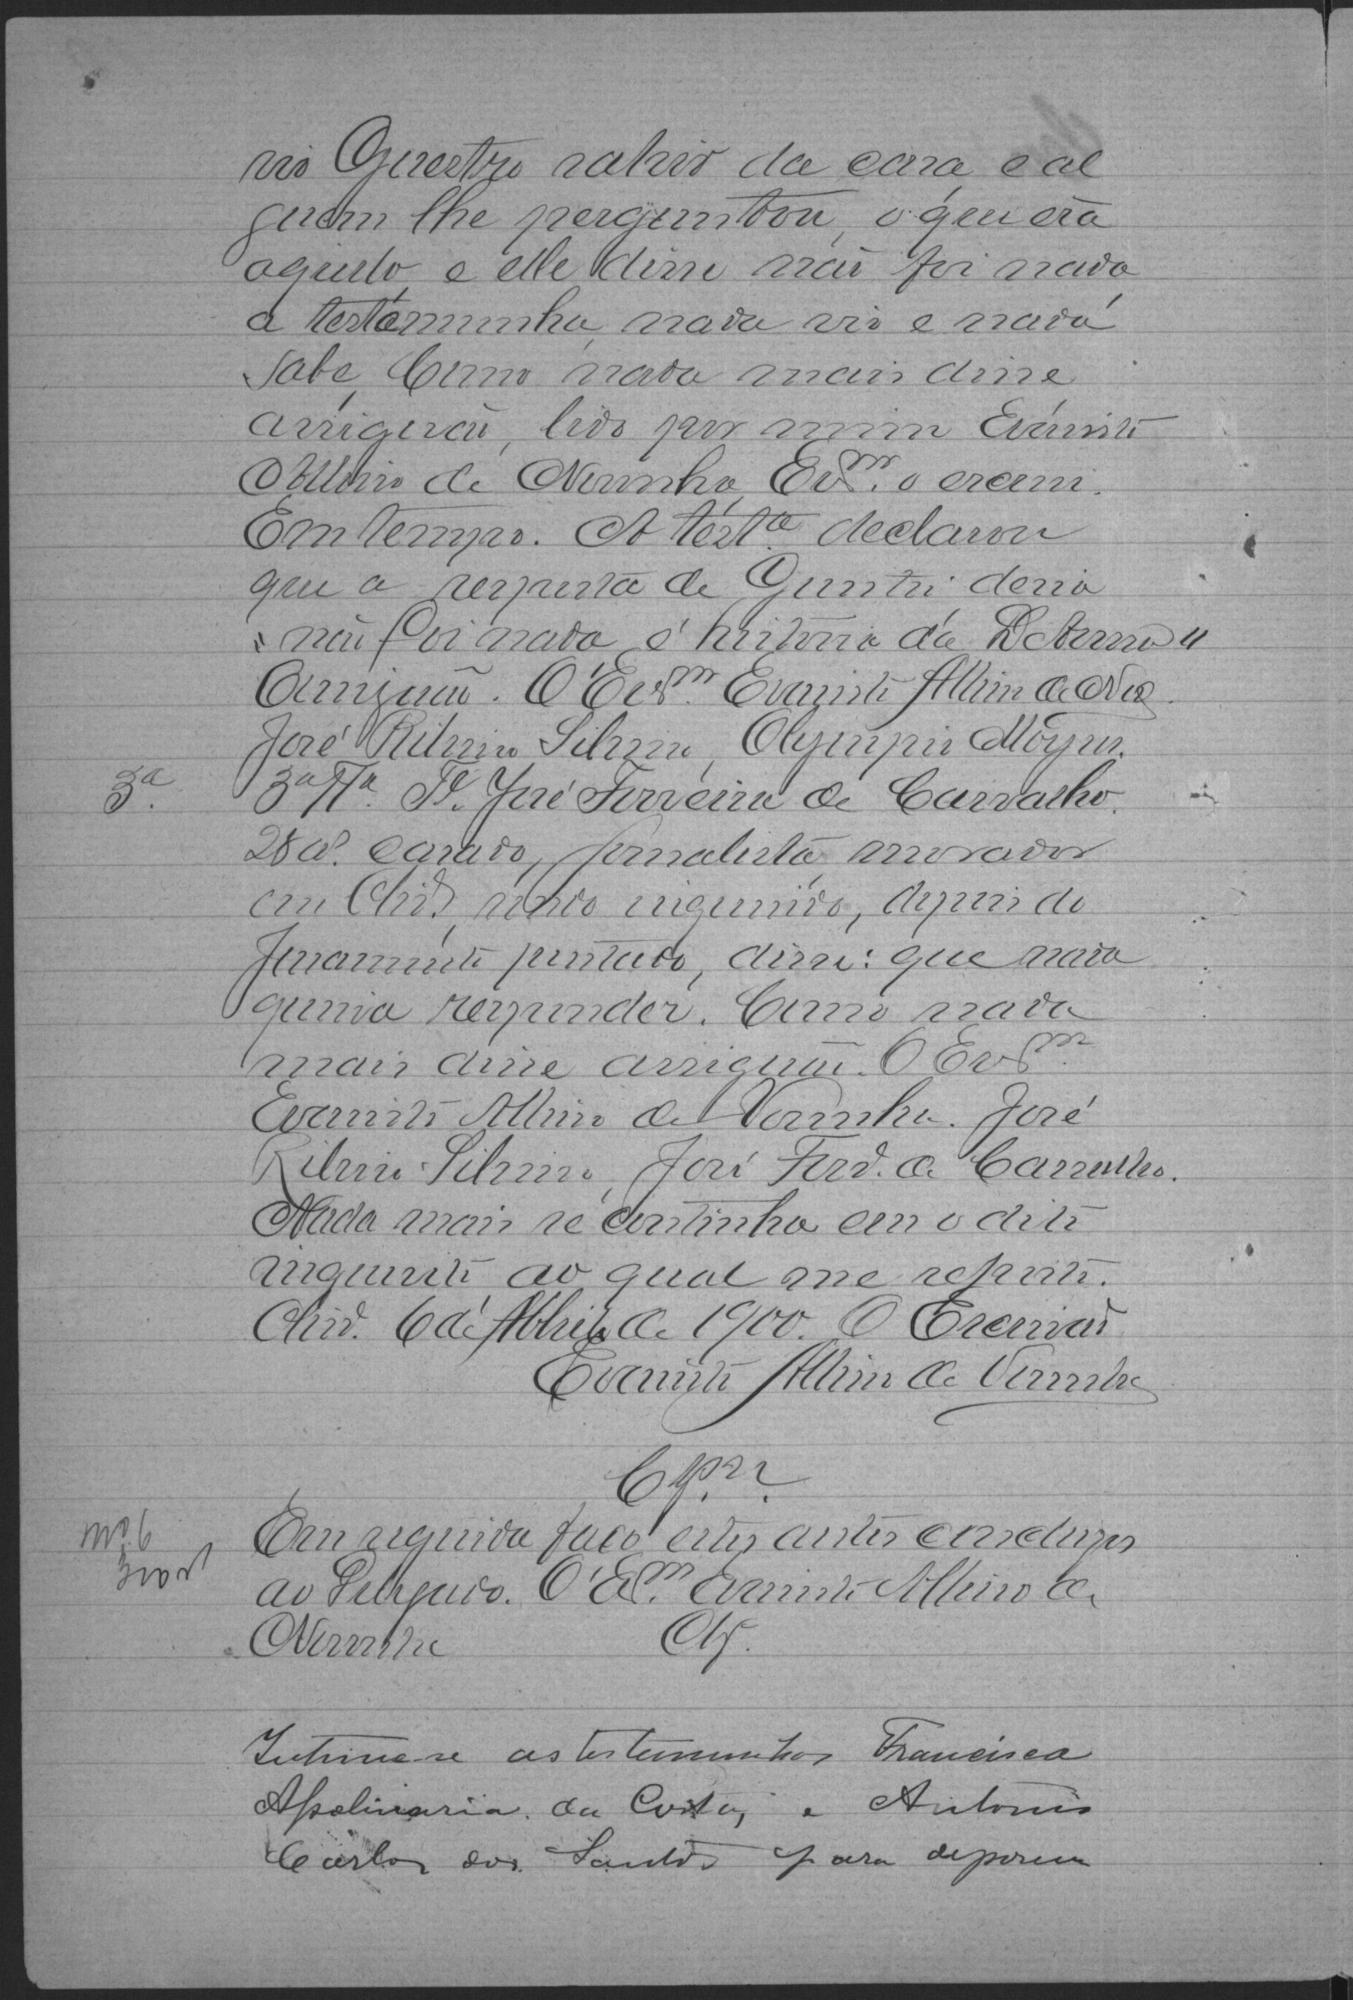 vio Querestro sahir da casa e al
guem lhe perguntou, o que era
aquillo, e elle disse não foi nada
a testemunha, nada vio e nada
sabe, Como nada mais disse
assignou, lido por mim Evaristo
Albino de Noronha, Esc.m o escrevi.
Em tempo. A test.a declarou
que a resposta de
não foi nada, é historia da
O Esc.m Evaristo Albino de
José Ribeiro Silva, Olympio Moyses.
3.a
3.a T.a T.e José Ferreira de Carvalho.
28 a.s casado, jornalista, morador
em Chr.d sendo inquirido, depois do
juramento prestado, disse: que nada
queria responder. Como nada
mais disse assignou. O Esc.m
Evaristo Albino de Noronha. José
Ribeiro José Ferr.a de Carvalho.
Nada mais se continha em o dito
inquerito ao qual me reporto.
6 de Abril de 1900. O Escrivão
Evaristo Albino de Noronha
Em seguida faço estes autos conclusos
ao O Es.m Evaristo Albino de
Noronha Cls.
Intime-se as testemunhas Francisca
Apolinaria da Costa, e Antonio
Carlos dos Santos para deporem